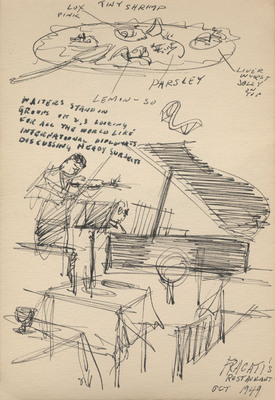 LOX
PINK
TINY SHRIMP
PARSLEY
LIVER
WURST
JELLY
ON
TOP
LEMON - SO
WAITERS STAND IN
GROUPS OR 2,3 LOOKING
FOR ALL THE WORLD LIKE
INTERNATIONAL DIPLOMATS
DISCUSSING WEIGHTY SUBJECTS
RESTAURANT
OCT 1949